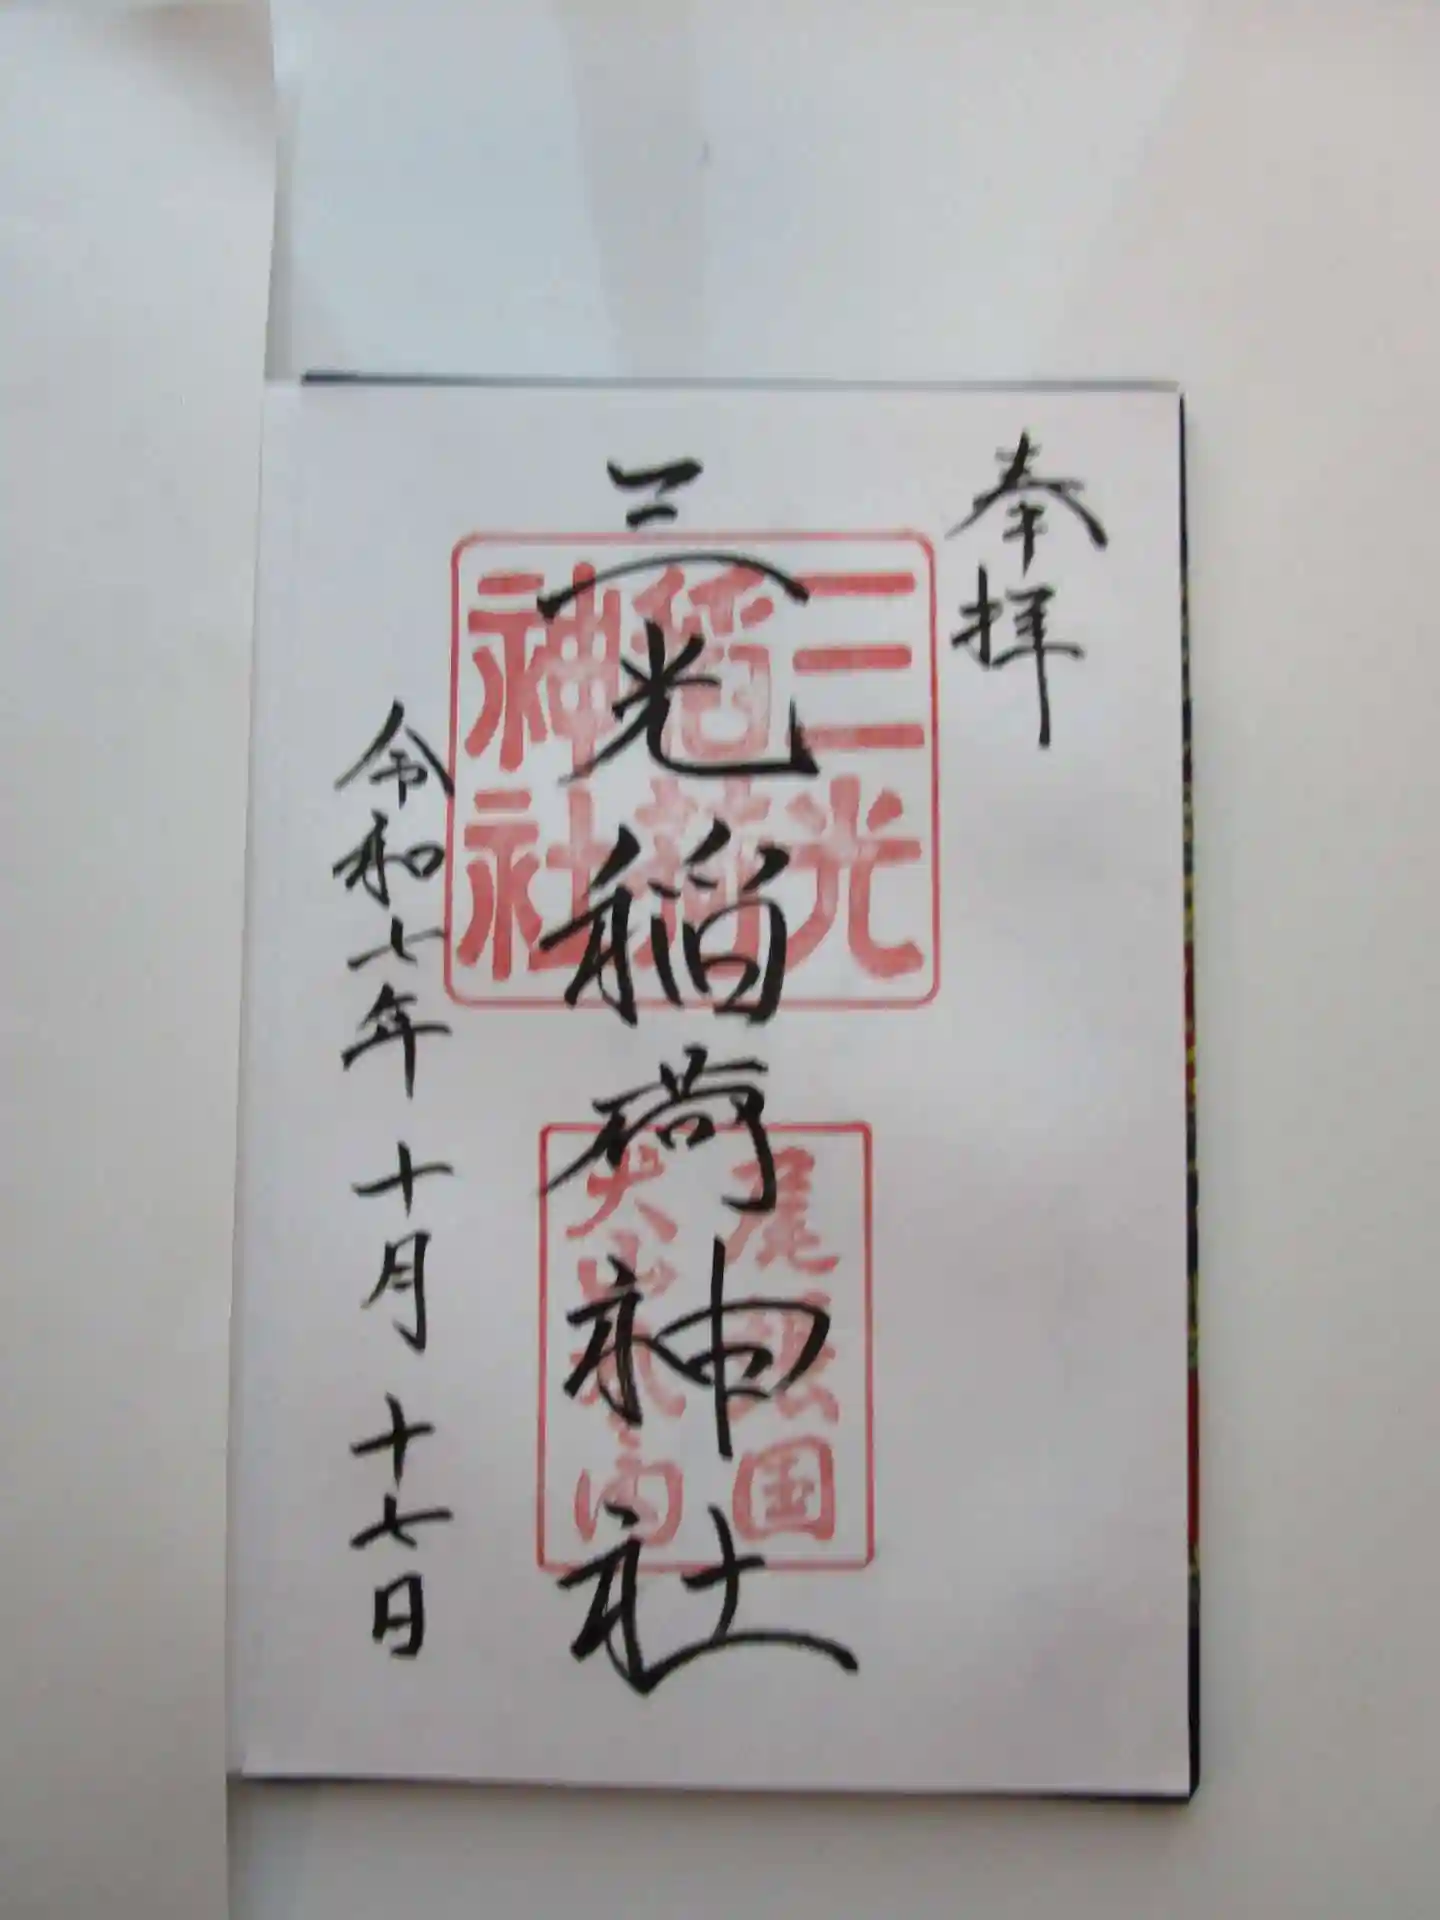 奉拝
三光稲荷神社
令和七年十月十七日
三光
稲荷
神社
尾張国
犬山城内